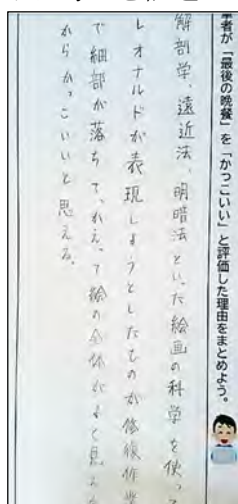 者が「最後の晩餐」を「かっこいい」と評価した理由をまとめよう。
解剖学、遠近法、明暗法といった絵画の科学を使っ
レオナルドが表現しようとしたものが修復作業
で細部が落ちて、かえって絵の全体がよく見え
からかっこいいと思える。